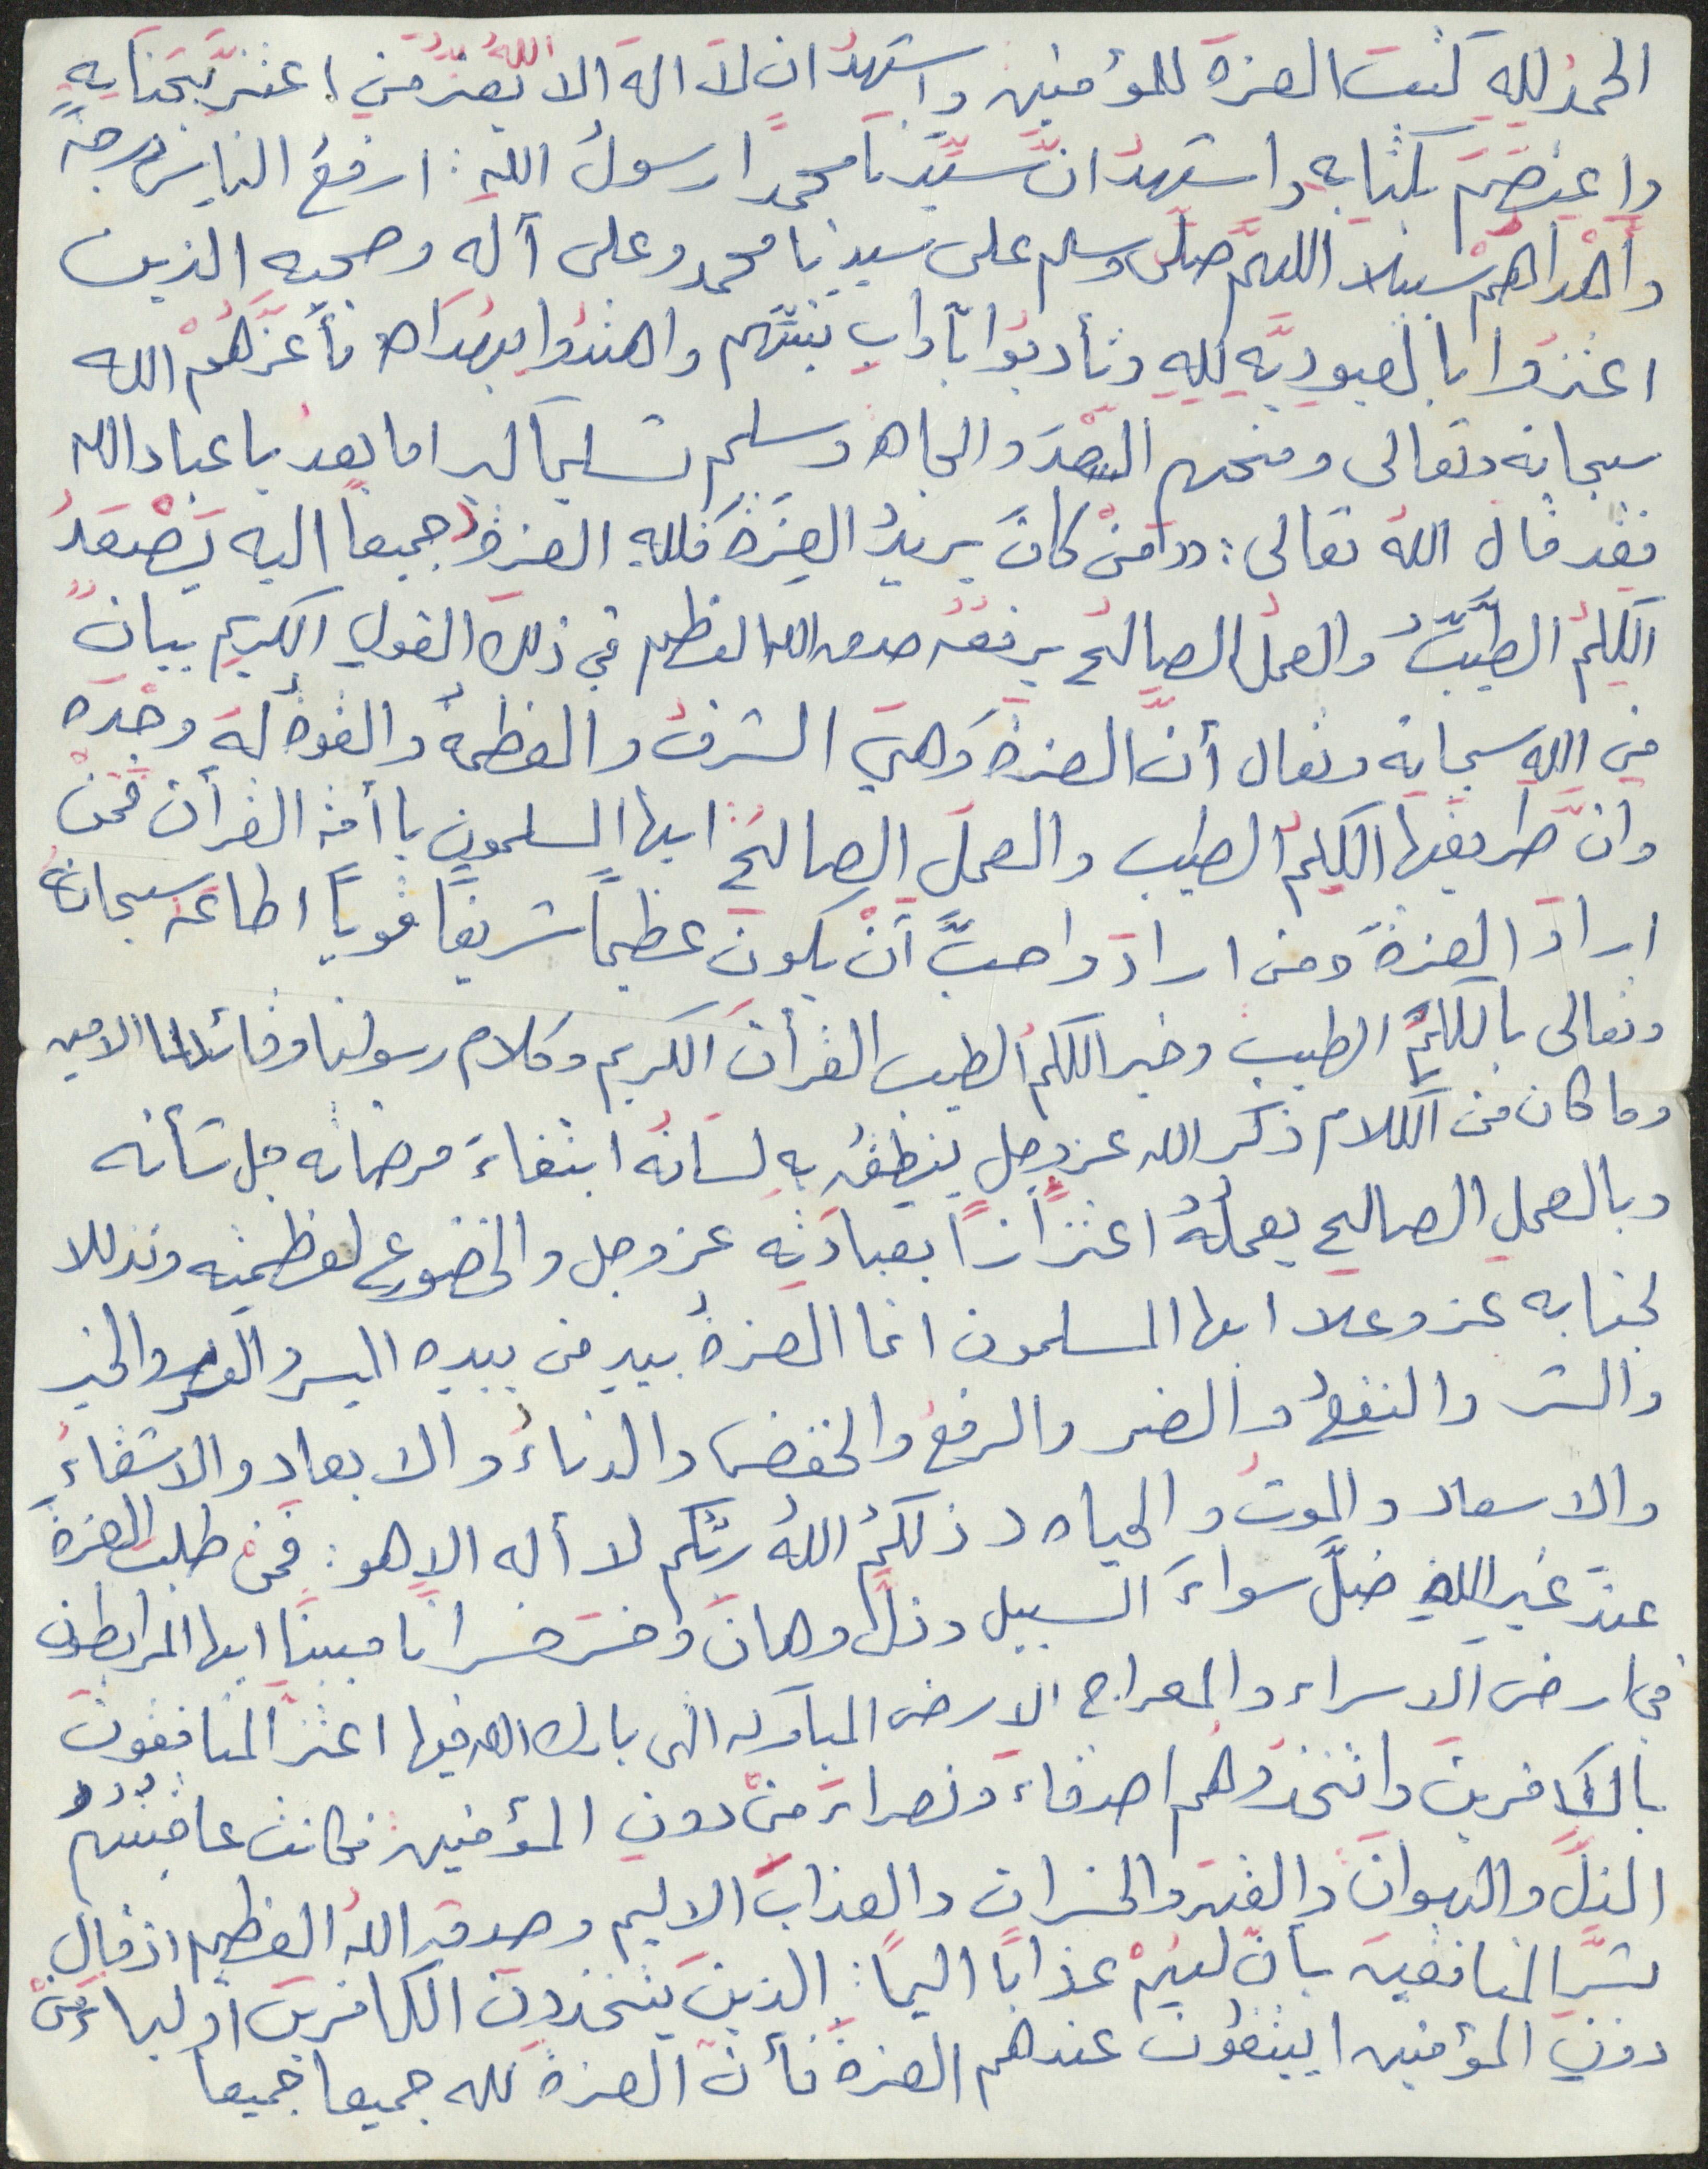 الحمدُ للهِ كتبَ العزةَ للمؤمنين واشهدُ ان لا اله الا اللهُ يُعِزُّ مَن اعتزَّ بجنابِهِ
واعتصَمَ بكتابِهِ واشهدُ انَّ سيِّدنا محمداً رسولُ اللهِ: ارفعُ الناسِ درجةً
وأهداهمْ سبيلا اللهمَّ صلِّ وسلم على سيدنا محمد وعلى آله وصحبه الذين
اعتزوا بالعبوديَّه للهِ وتأدبُوا بآدابِ نبيِّهم واهتدُوا بهداه فأعَزَّهُمْ الله
سبحانه وتعالى ومنحهم السعْدَ والجاه وسلم تسليما كثيرا اما بعدُ يا عباد الله
فقد قال اللهُ تعالى: ((مَنْ كانَ يريدُ العِزَةَ فللهِ العزةُ جميعاً اليه يَصْعَدُ
الكلِمُ الطيِّبُ والعملُ الصالحُ يرفعُه صدق الله العظيم في ذلكَ القولِ الكريمِ بيانٌ
مِن اللهِ سبحانِه وتعال أنَّ العزةَ وَهيَ الشرفُ والعظمةُ والقوةُ لَهُ وحْدَه
وانَّ طريقَها الكلِمُ الطيب والعملَ الصالحَ ايها المسلمون يا أمة القرأن فَمَنْ
ارادَ العزةَ ومن ارادَ واحبَّ أنْ يكونَ عظيماً شريفاً قوياً اطاعَه سبحانَهُ
وتعالى بالكلِمِ الطيبِ وخير الكلمُ الطيب القرأن الكريم وكلام رسولنا وقائدنا الامين
وما كان من الكلام ذكر الله عز وجل ينطقُه بهِ لسَانُه ابتغاءَ مرضاته جل شأنه
وبالعملِ الصالحِ يعملُهُ اعتزازاً بعبادَتِهِ عز وجل والخضوع لعظمته وتذللا
لجنابه عز وعلا ايها المسلمون انما العزةُ بيدِ من بيده اليسر والعسر والخير
والشر والنفعُ والضر والرفعُ والخفض والدناءُ والابعادِ والاشقاءُ
والاسعاد والموتُ والحياه ذلكُم اللهُ ربُّكم لا أله الا هو: فمَنْ طلبَ العزة
عندَ غيرِ اللهِ ضلَّ سواءَ السبيل وذلَّ وهانَ وخسَر خسرانا مبيناً ايها المرابطون
في ارض الاسراء والمعراج الارض المباركه التى بارك الله فيها اعتزَّ المنافقونَ
بالكافرينَ واتخذوهُم اصدقاءَ ونصراءَ منْ دونِ المؤمنين فكانت عاقبتُهُم
الذلَّ والهوانَ والقهرَ والخسران والعذابَ الاليم وصدق اللهُ العظيم اذ قال
بشِّرِ المنافقينَ بأنَّ لهُمْ عذاباً اليماً: الذينَ يتخذونَ الكافرينَ أولياءَ مِنْ
دونِ المؤمنين ايبتغُونَ عندهم العزةَ فأنَّ العزةَ لله جميعا جميعا